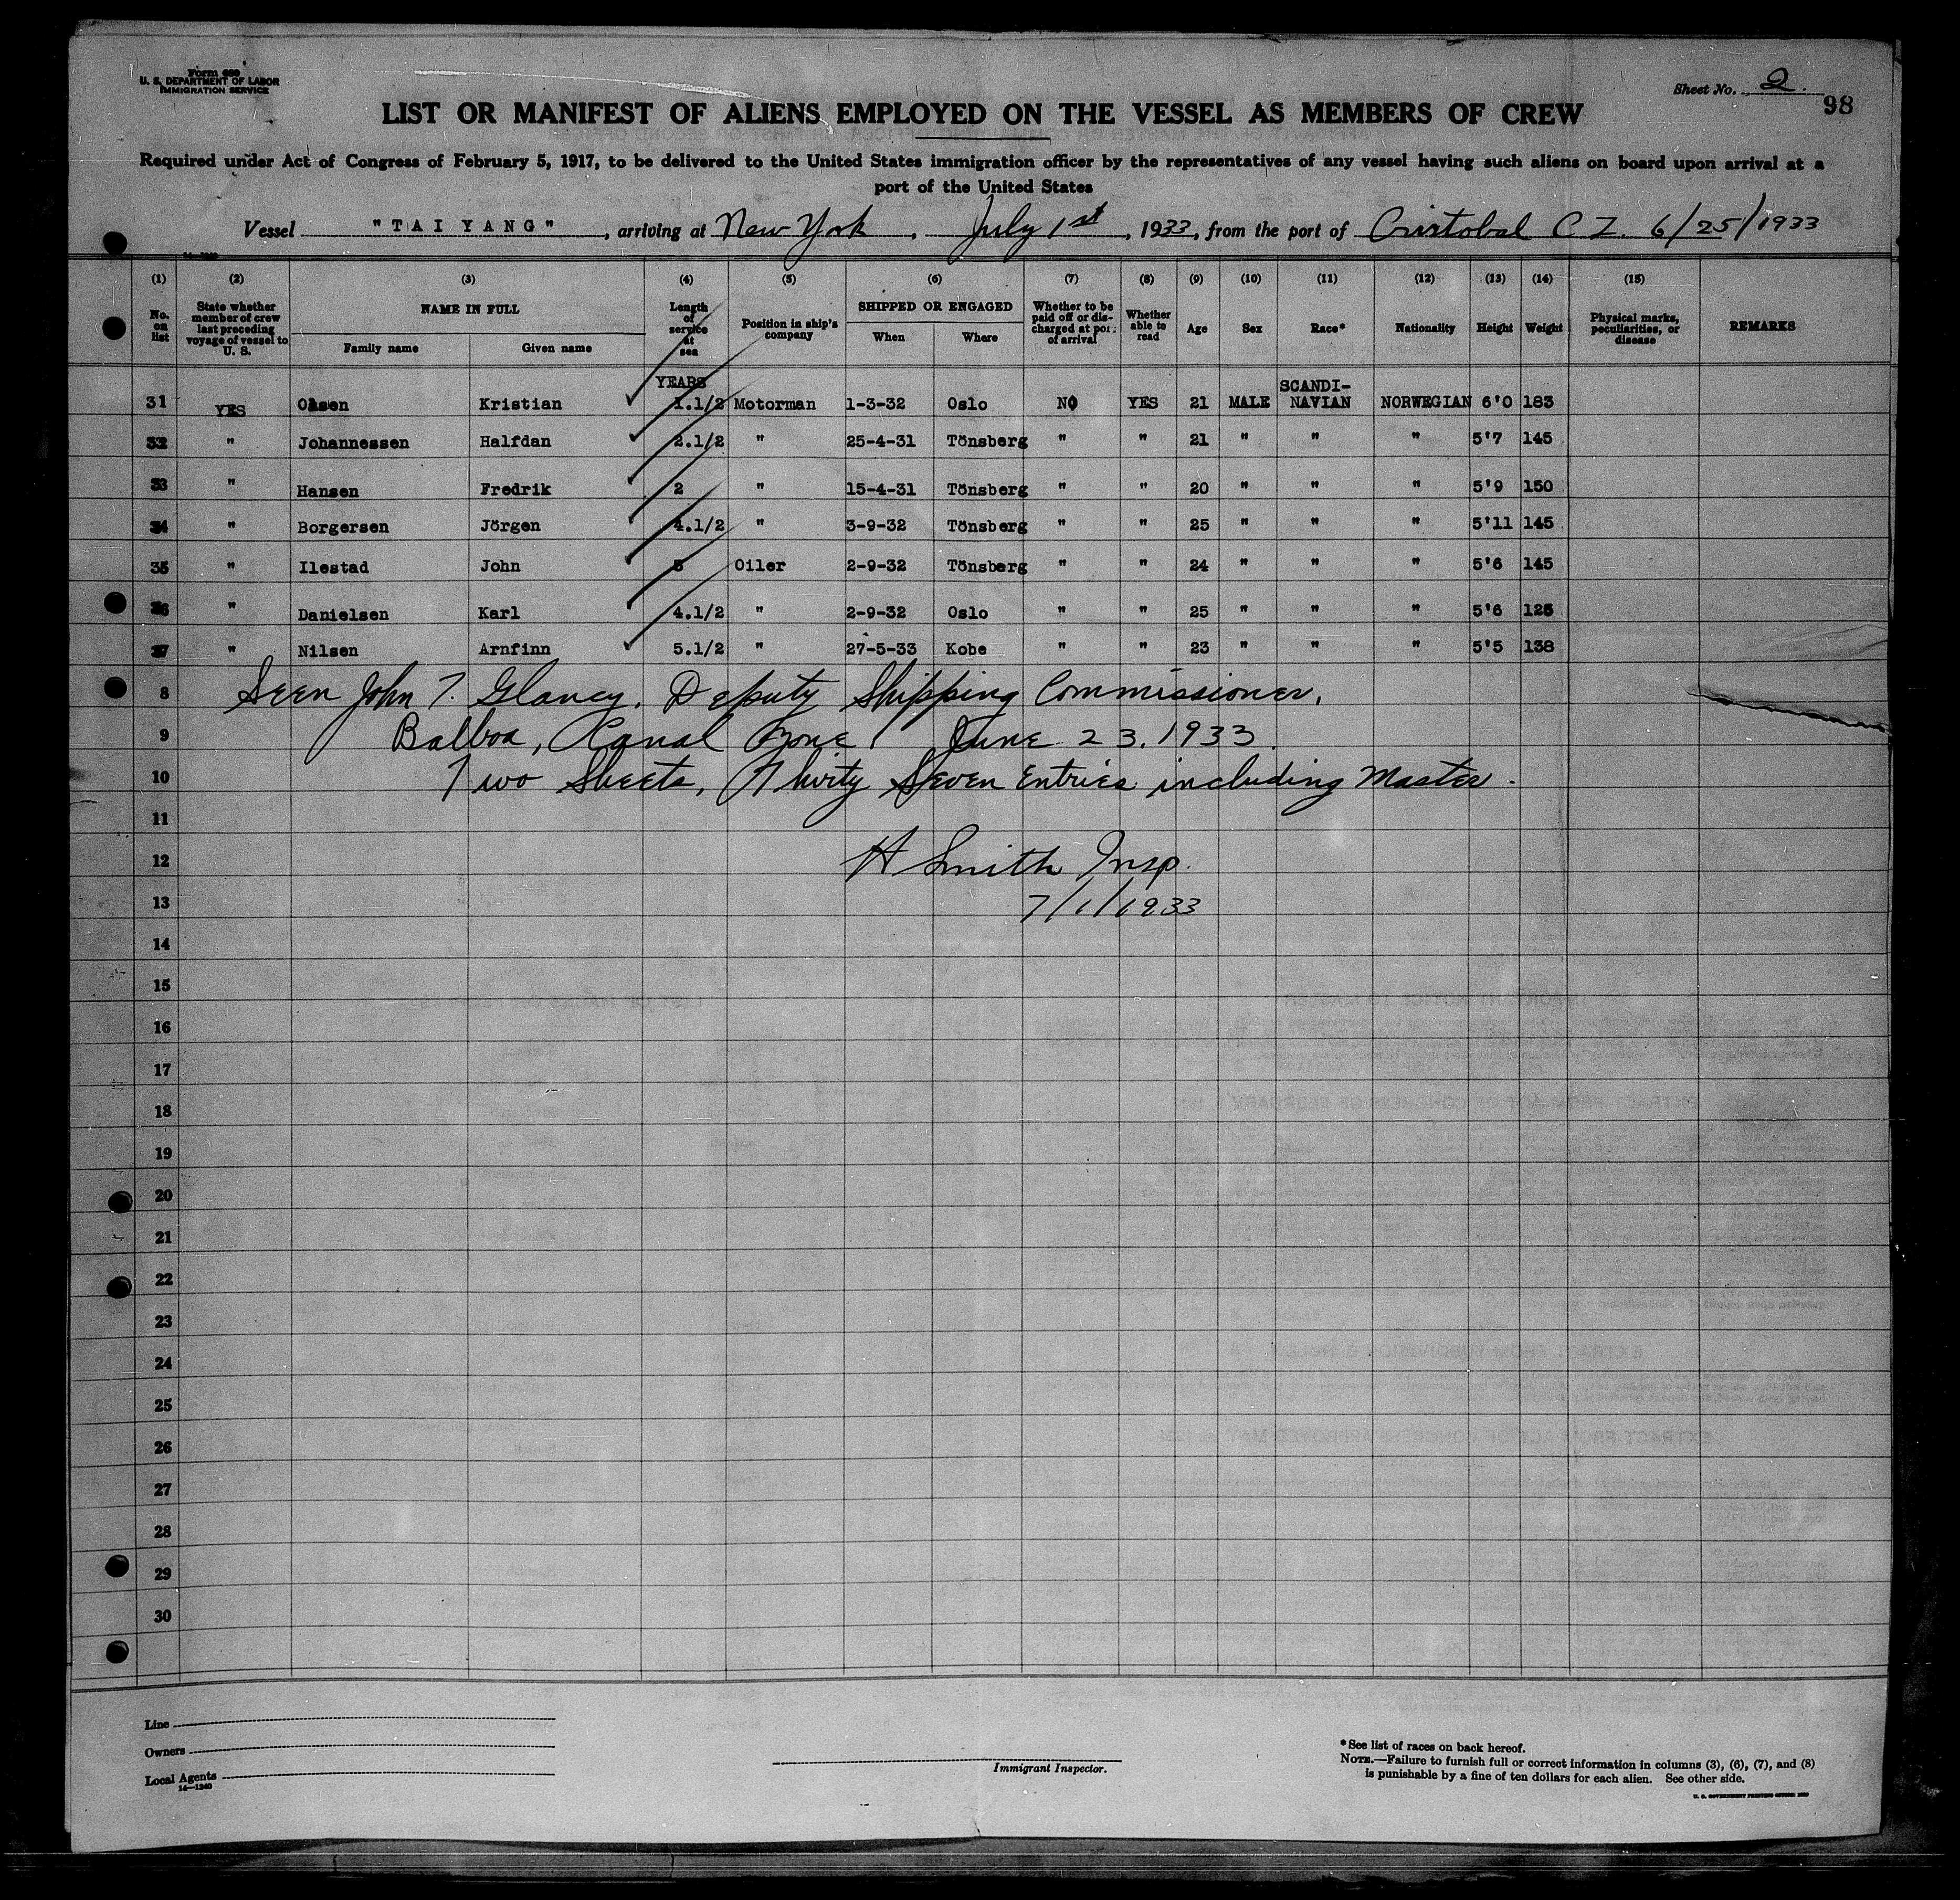 Form 680
U. S. DEPARTMENT OF LABOR
IMMIGRATION SERVICE
Sheet No. 2.
98
LIST OR MANIFEST OF ALIENS EMPLOYED ON THE VESSEL AS MEMBERS OF CREW
Required under Act of Congress of February 5, 1917, to be delivered to the United States immigration officer by the representatives of any vessel having such aliens on board upon arrival at a
port of the United States
Vessel "TAI YANG", arriving at New York, July 1st, 1933, from the port of Cristobal C Z. 6/25/1933
(1) (2) (3) (4) (5) (6) (7) (8) (9) (10) (11) (12) (13) (14) (15)
No. on list State whether member of crew last preceding voyage of vessel to U. S. NAME IN FULL Family name Given name Length of service at sea Position in ship's company SHIPPED OR ENGAGED When Where Whether to be paid off or discharged at port of arrival Whether able to read Age Sex Race* Nationality Height Weight Physical marks, peculiarities, or disease REMARKS
YEARS SCANDI-
31 YES Olsen Kristian 1.1/2 Motorman 1-3-32 Oslo NO YES 21 MALE NAVIAN NORWEGIAN 6'0 183
32 " Johannessen Halfdan 2.1/2 " 25-4-31 Tönsberg " " 21 " " " 5'7 145
33 " Hansen Fredrik 2 " 15-4-31 Tönsberg " " 20 " " " 5'9 150
34 " Borgersen Jörgen 4.1/2 " 3-9-32 Tönsberg " " 25 " " " 5'11 145
35 " Ilestad John Oiler 2-9-32 Tönsberg " " 24 " " " 5'6 145
36 " Danielsen Karl 4.1/2 " 2-9-32 Oslo " " 25 " " " 5'6 125
37 " Nilsen Arnfinn 5.1/2 " 27-5-33 Kobe " " 23 " " " 5'5 138
8 Seen John T. Glancy. Deputy Shipping Commissioner,
9 Balboa, Canal Zone. June 23, 1933.
10 Two Sheets, Thirty Seven Entries including Master.
11
12 H Smith Insp.
13 7/1/1933
14
15
16
17
18
19
20
21
22
23
24
25
26
27
28
29
30
Line
Owners
Local Agents
14—1240
Immigrant Inspector.
*See list of races on back hereof.
NOTE.—Failure to furnish full or correct information in columns (3), (6), (7), and (8)
is punishable by a fine of ten dollars for each alien. See other side.